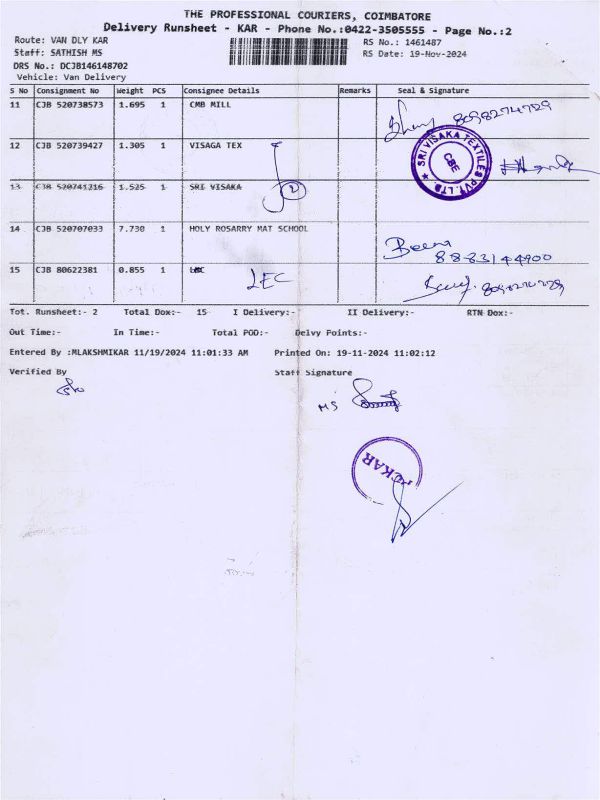 THE PROFESSIONAL COURIERS, COIMBATORE
Delivery Runsheet - KAR - Phone No.:0422-3505555 - Page No.:2
Route: VAN DLY KAR RS No.: 1461487
Staff: SATHISH MS RS Date: 19-Nov-2024
DRS No.: DCJB146148702
Vehicle: Van Delivery
S No Consignment No Weight PCS Consignee Details Remarks Seal & Signature
11 CJB 520738573 1.695 1 CMB MILL 8098274729
12 CJB 520739427 1.305 1 VISAGA TEX
SRI VISAKA TEXTILES PVT. LTD. ★ CBE
13 CJB 520741216 1.525 1 SRI VISAKA 2
14 CJB 520707033 7.730 1 HOLY ROSARRY MAT SCHOOL Beena
8883144900
15 CJB 80622381 0.855 1 LEC LEC
Tot. Runsheet:- 2 Total Dox:- 15 I Delivery:- II Delivery:- RTN Dox:-
Out Time:- In Time:- Total POD:- Delvy Points:-
Entered By :MLAKSHMIKAR 11/19/2024 11:01:33 AM Printed On: 19-11-2024 11:02:12
Verified By Staff Signature
MS
KAR